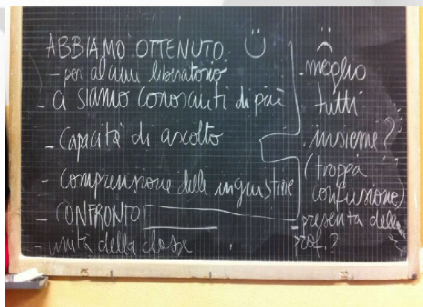 ABBIAMO OTTENUTO:
- per alcuni liberatorio
- ci siamo conosciuti di più
- capacità di ascolto
- comprensione delle ingiustizie
- CONFRONTO
- unità della classe
- meglio
tutti
insieme?
(troppa
confusione)
- presenza della
prof.?